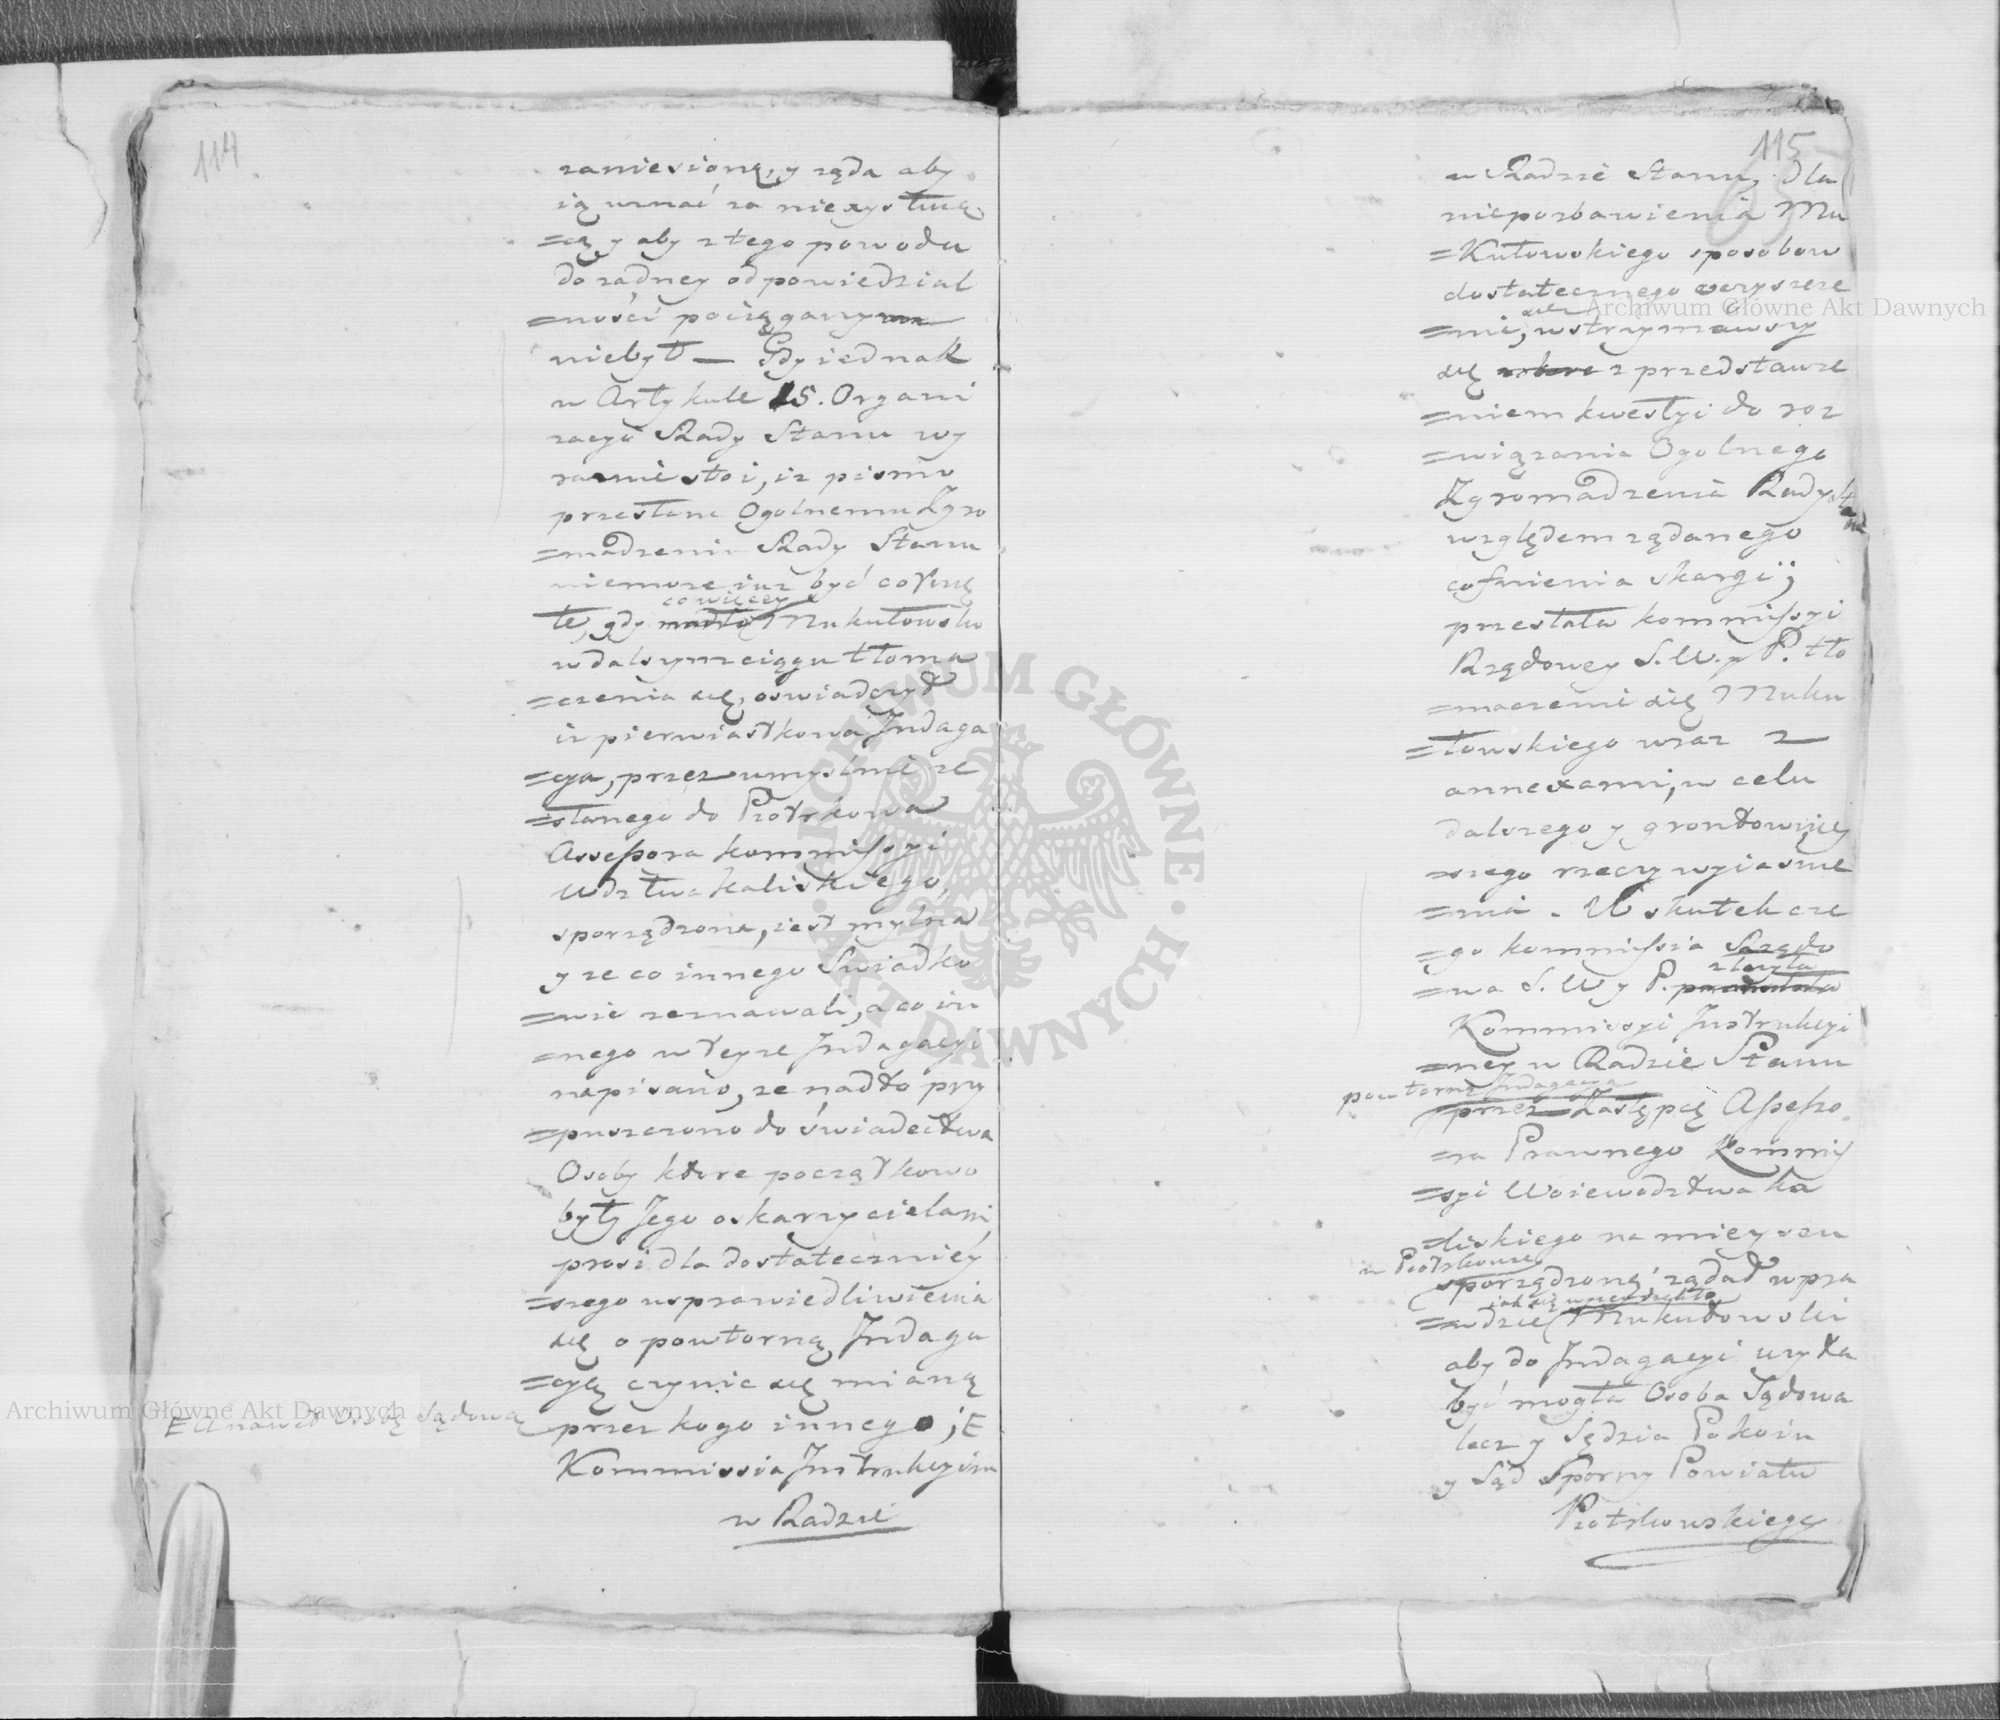 114
zaniesioną, y ząda aby
ią uznać za nieexystuią
=cą y aby z tego powodu
do zadney odpowiedzial
=ności pociągany
niebył — Gdy iednak
w Artykule 15. Organi
zacyi Rady Stanu wy
raznie stoi, iz pismo
przesłane Ogólnemu Zgro
=madzeniu Rady Stanu
niemoze iuz być cofnię
co więcey
te, gdy Mukułowski
w dalszym ciągu tłoma
=czenia się, oswiadczył
iz pierwiastkowa Indaga
=cya, przez umyslnie ze
=słanego do Piotrkowa
Assessora Kommissyi
Wdztwa Kaliskiego,
sporządzona, iest mylna
y ze co innego Swiadko
=wie zeznawali, a co in
=nego w teyze Indagacyi
napisano, ze nadto przy
=puszczono do świadectwa
Osoby które początkowo
były Jego oskarzycielami,
prosi dla dostateczniey
=szego usprawiedliwienia
się o powtorną Indaga
=cyę czynic się mianą
przez kogo innego; E
E a nawet Osobę Sądową
Kommissia Instrukcyina
w Radzie
115
w Radzie Stanu, dla
niepozbawienia Mu
=kułowskiego sposobow
dostatecznego oczyszcze
=nia, wstrzymawszy
się z przedstawie
=niem kwestyi do roz
=wiązania Ogolnego
Zgromadzenia Rady Stanu
względem ządanego
cofnienia skargi;
przesłała Kommissyi
Rządowey S. W. y P. tło
=maczenie się Muku
=łowskiego wraz z
annexami, w celu
dalszego y grontowniey
=szego rzeczy wyiasnie
=nia. W skutek cze
=go Kommissia Rządo
złozyła
=wa S. W y P.
Kommissyi Instrukcyi
=ney w Radzie Stanu
powtorną Indagacyą
przez Zastępcę Assesso
=ra Prawnego Kommis
=syi Woiewodztwa Ka
=liskiego na mieyscu
w Piotrkowie
sporządzoną; ządał wpra
iak się wyzey rzekło
=wdzie Mukułowski
aby do Indagacyi uzyta
być mogła Osoba Sądowa
lecz y Sędzia Pokoiu
y Sąd Sporny Powiatu
Piotrkowskiego
Archiwum Główne Akt Dawnych
Archiwum Główne Akt Dawnych
ARCHIWUM GŁÓWNE · AKT DAWNYCH ·